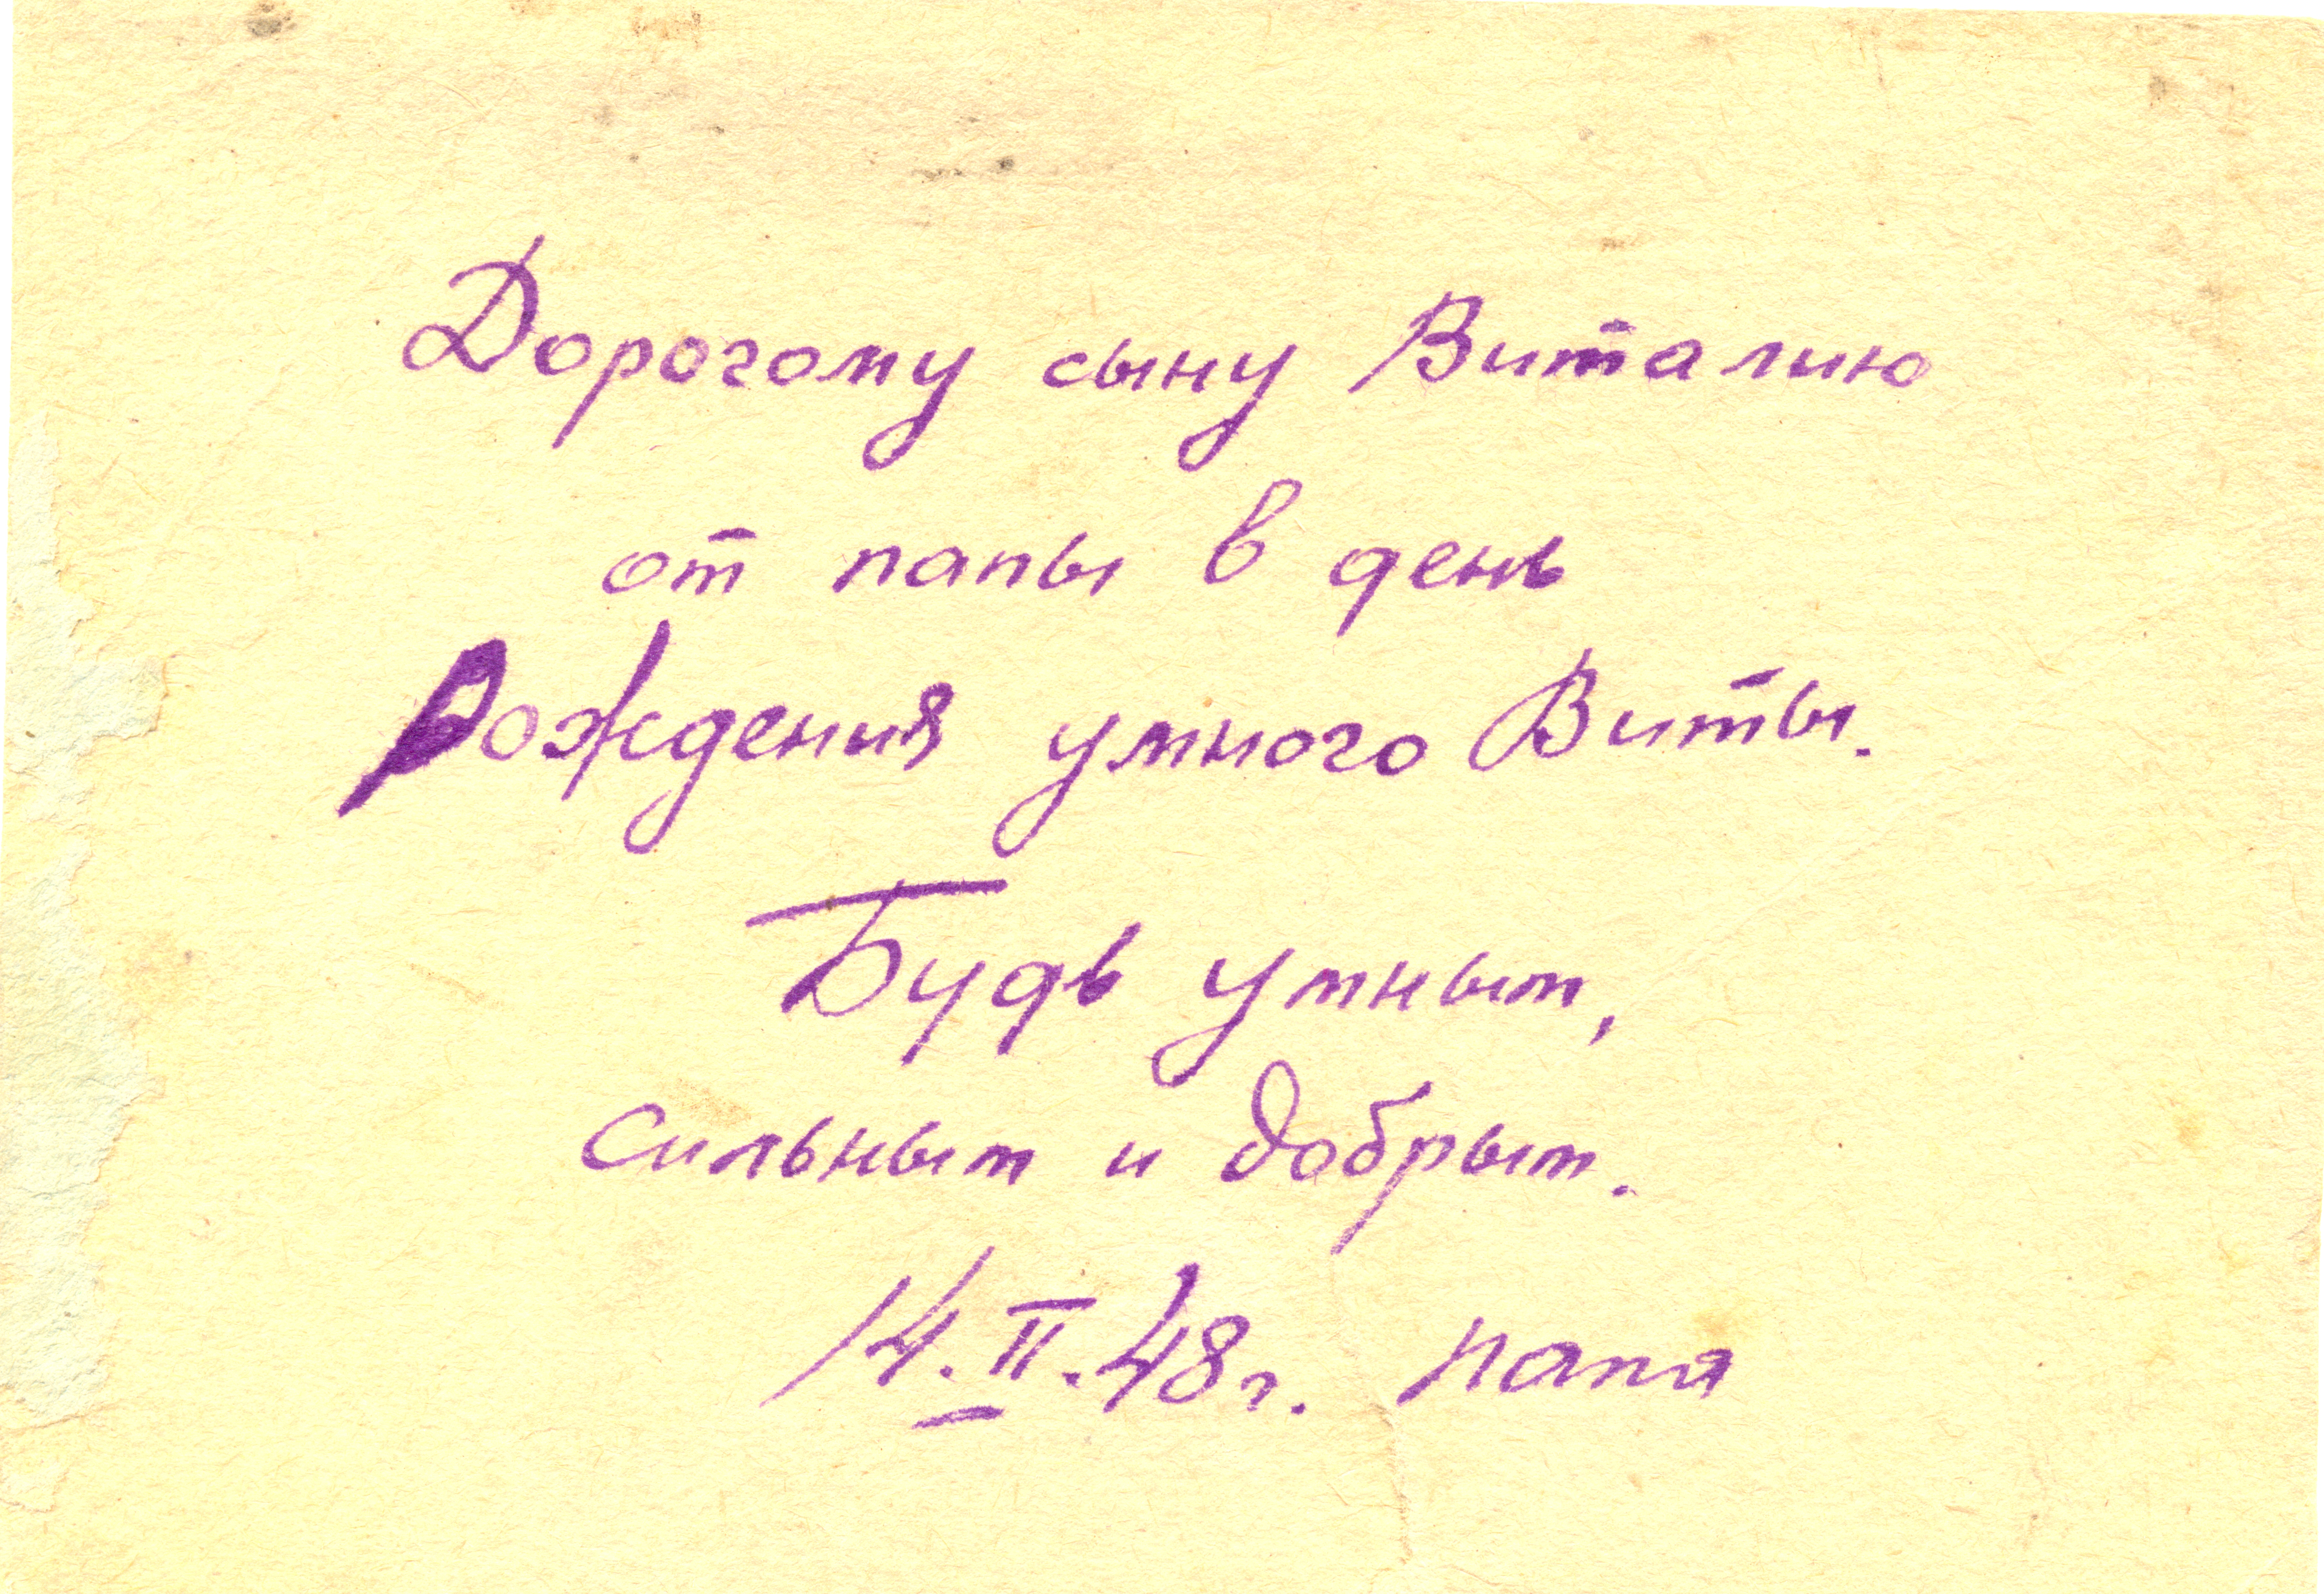 Дорогому сыну Виталию
от папы в день
Рождения умного Виты.
Будь умным,
сильным и добрым.
14.II.48г. папа